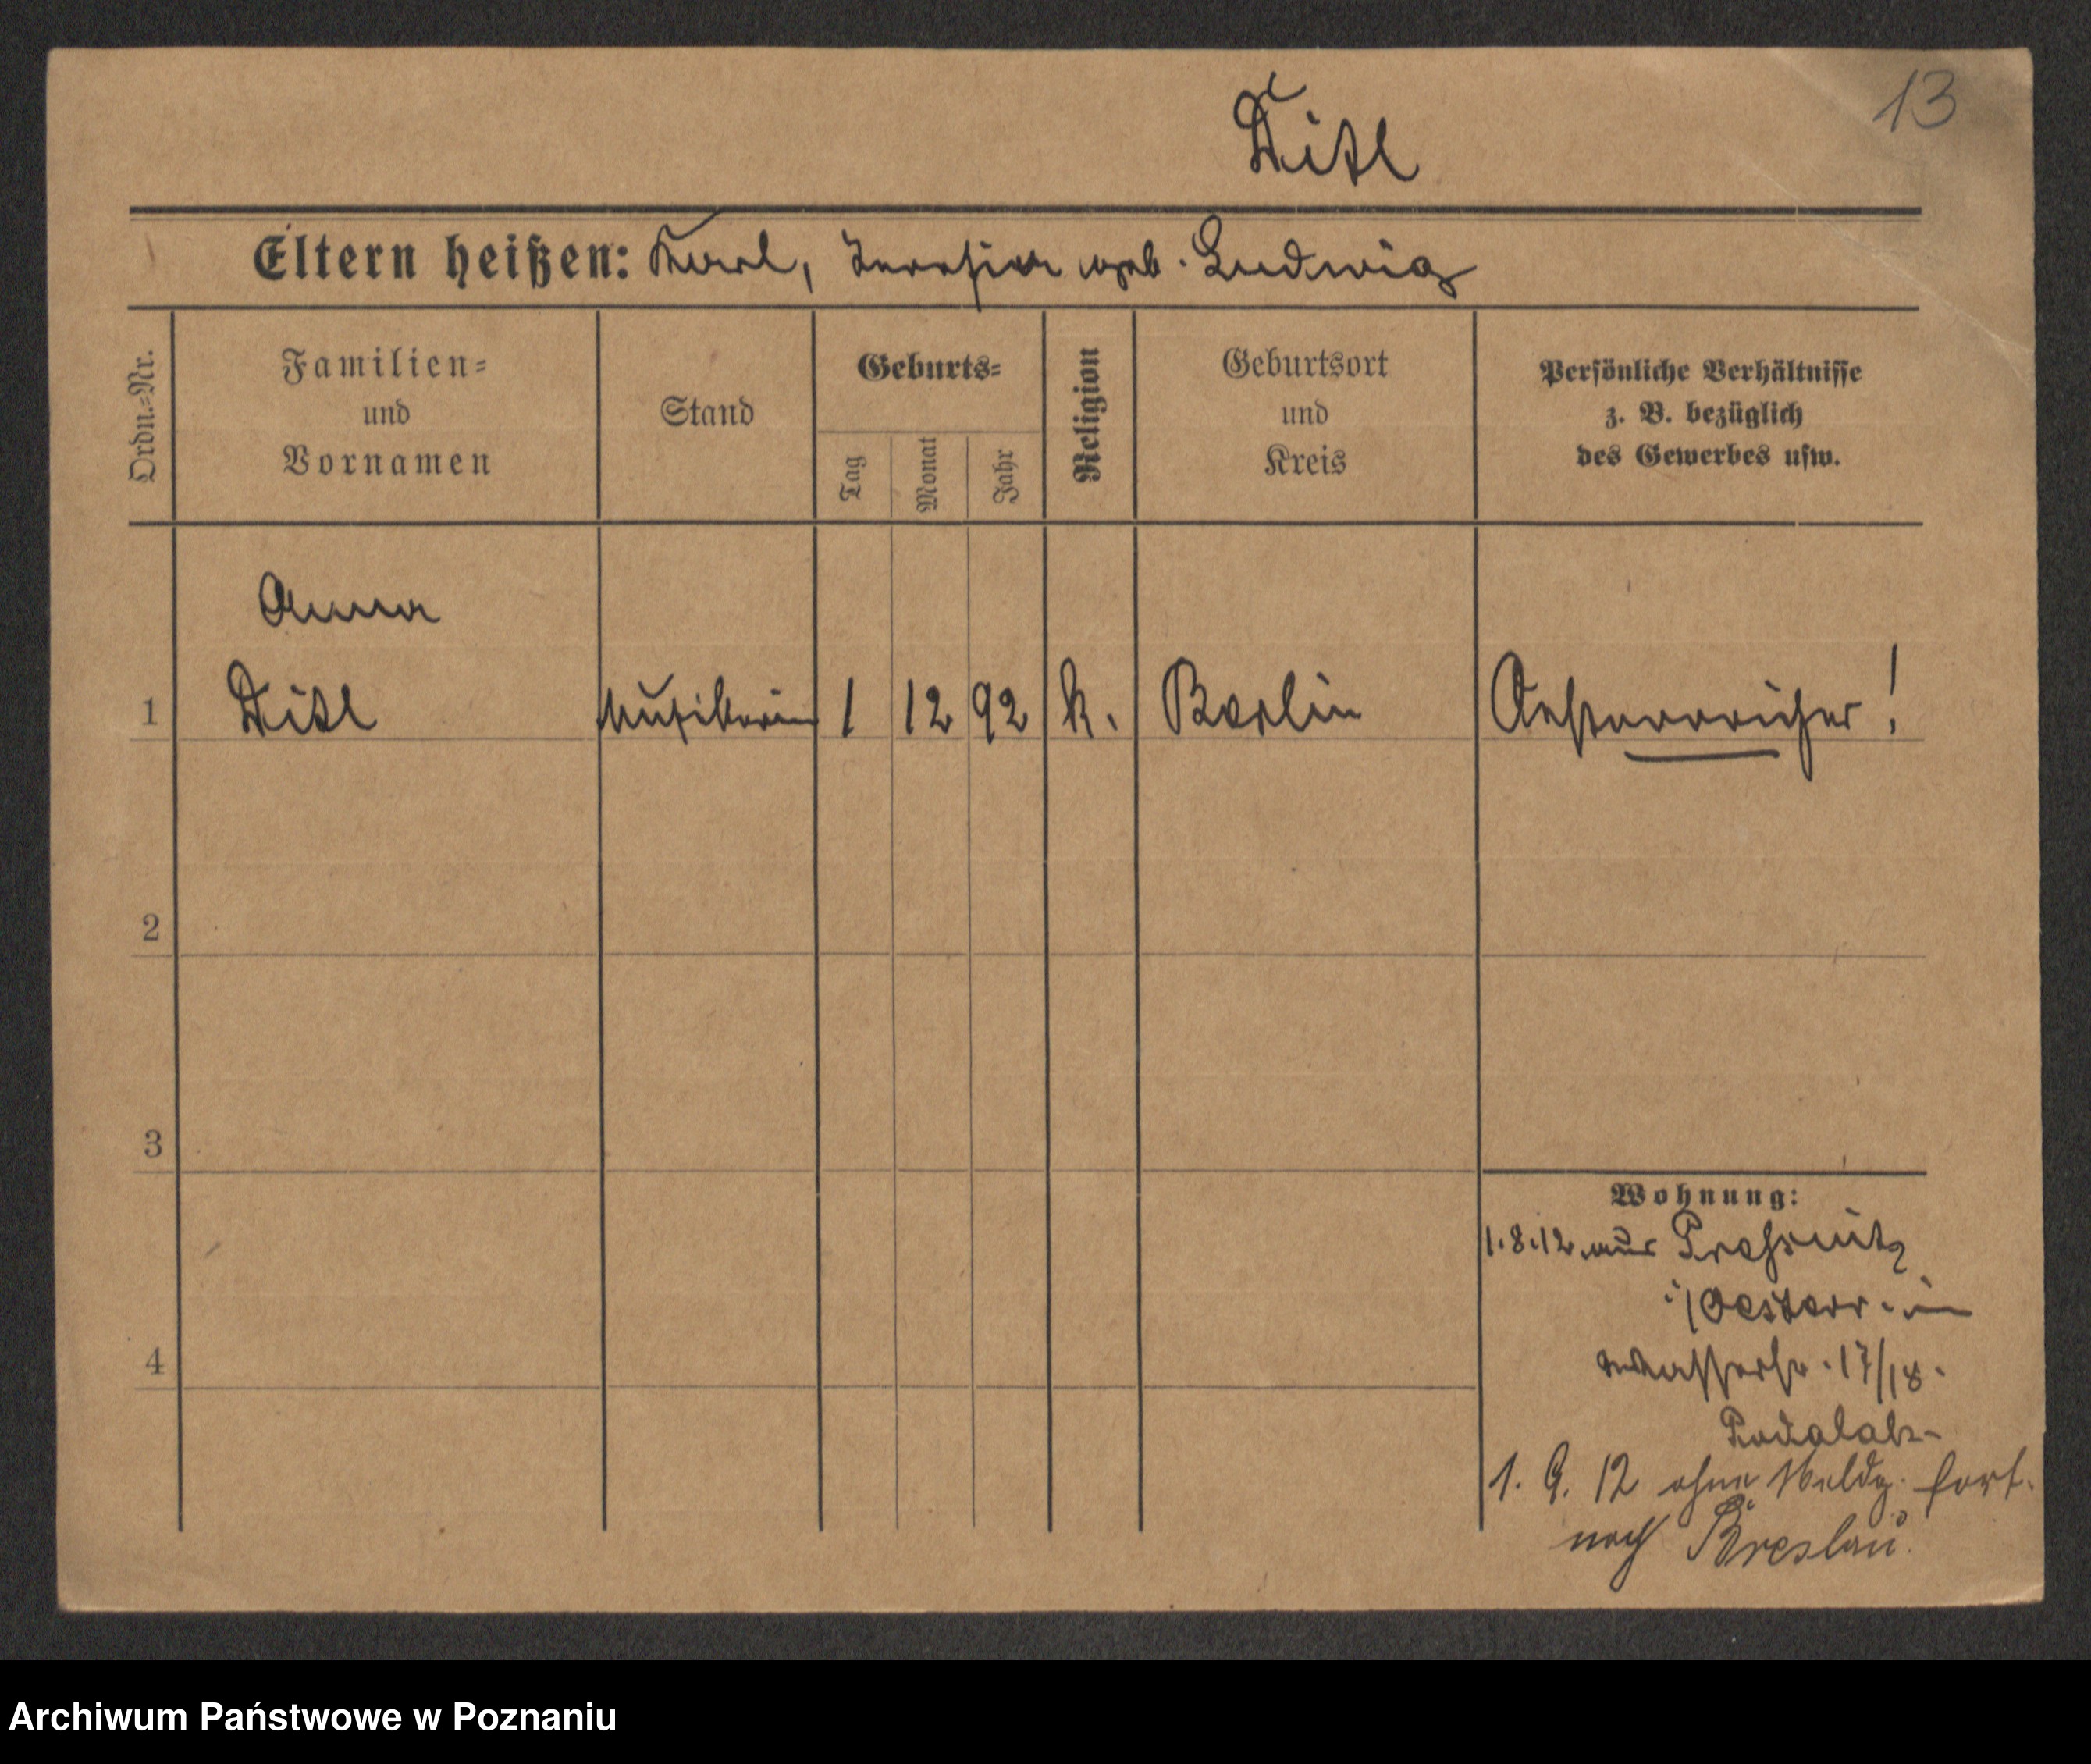 13
Ditl
Eltern heißen: Karl, Theresia geb. Ludwig
Ordn.=Nr.
Familien=
und
Vornamen
Stand
Geburts=
Tag
Monat
Jahr
Religion
Geburtsort
und
Kreis
Persönliche Verhältnisse
z. B. bezüglich
des Gewerbes usw.
Anna
1 Ditl Musikerin 1 12 92 k. Berlin Oesterreicher!
2
3
4
Wohnung:
1.8.12 aus Pressnitz
i/Oesterr. in
Wasserstr. 17/18.
1. 9. 12 ohne Meldg. fort.
nach Breslau.
Archiwum Państwowe w Poznaniu